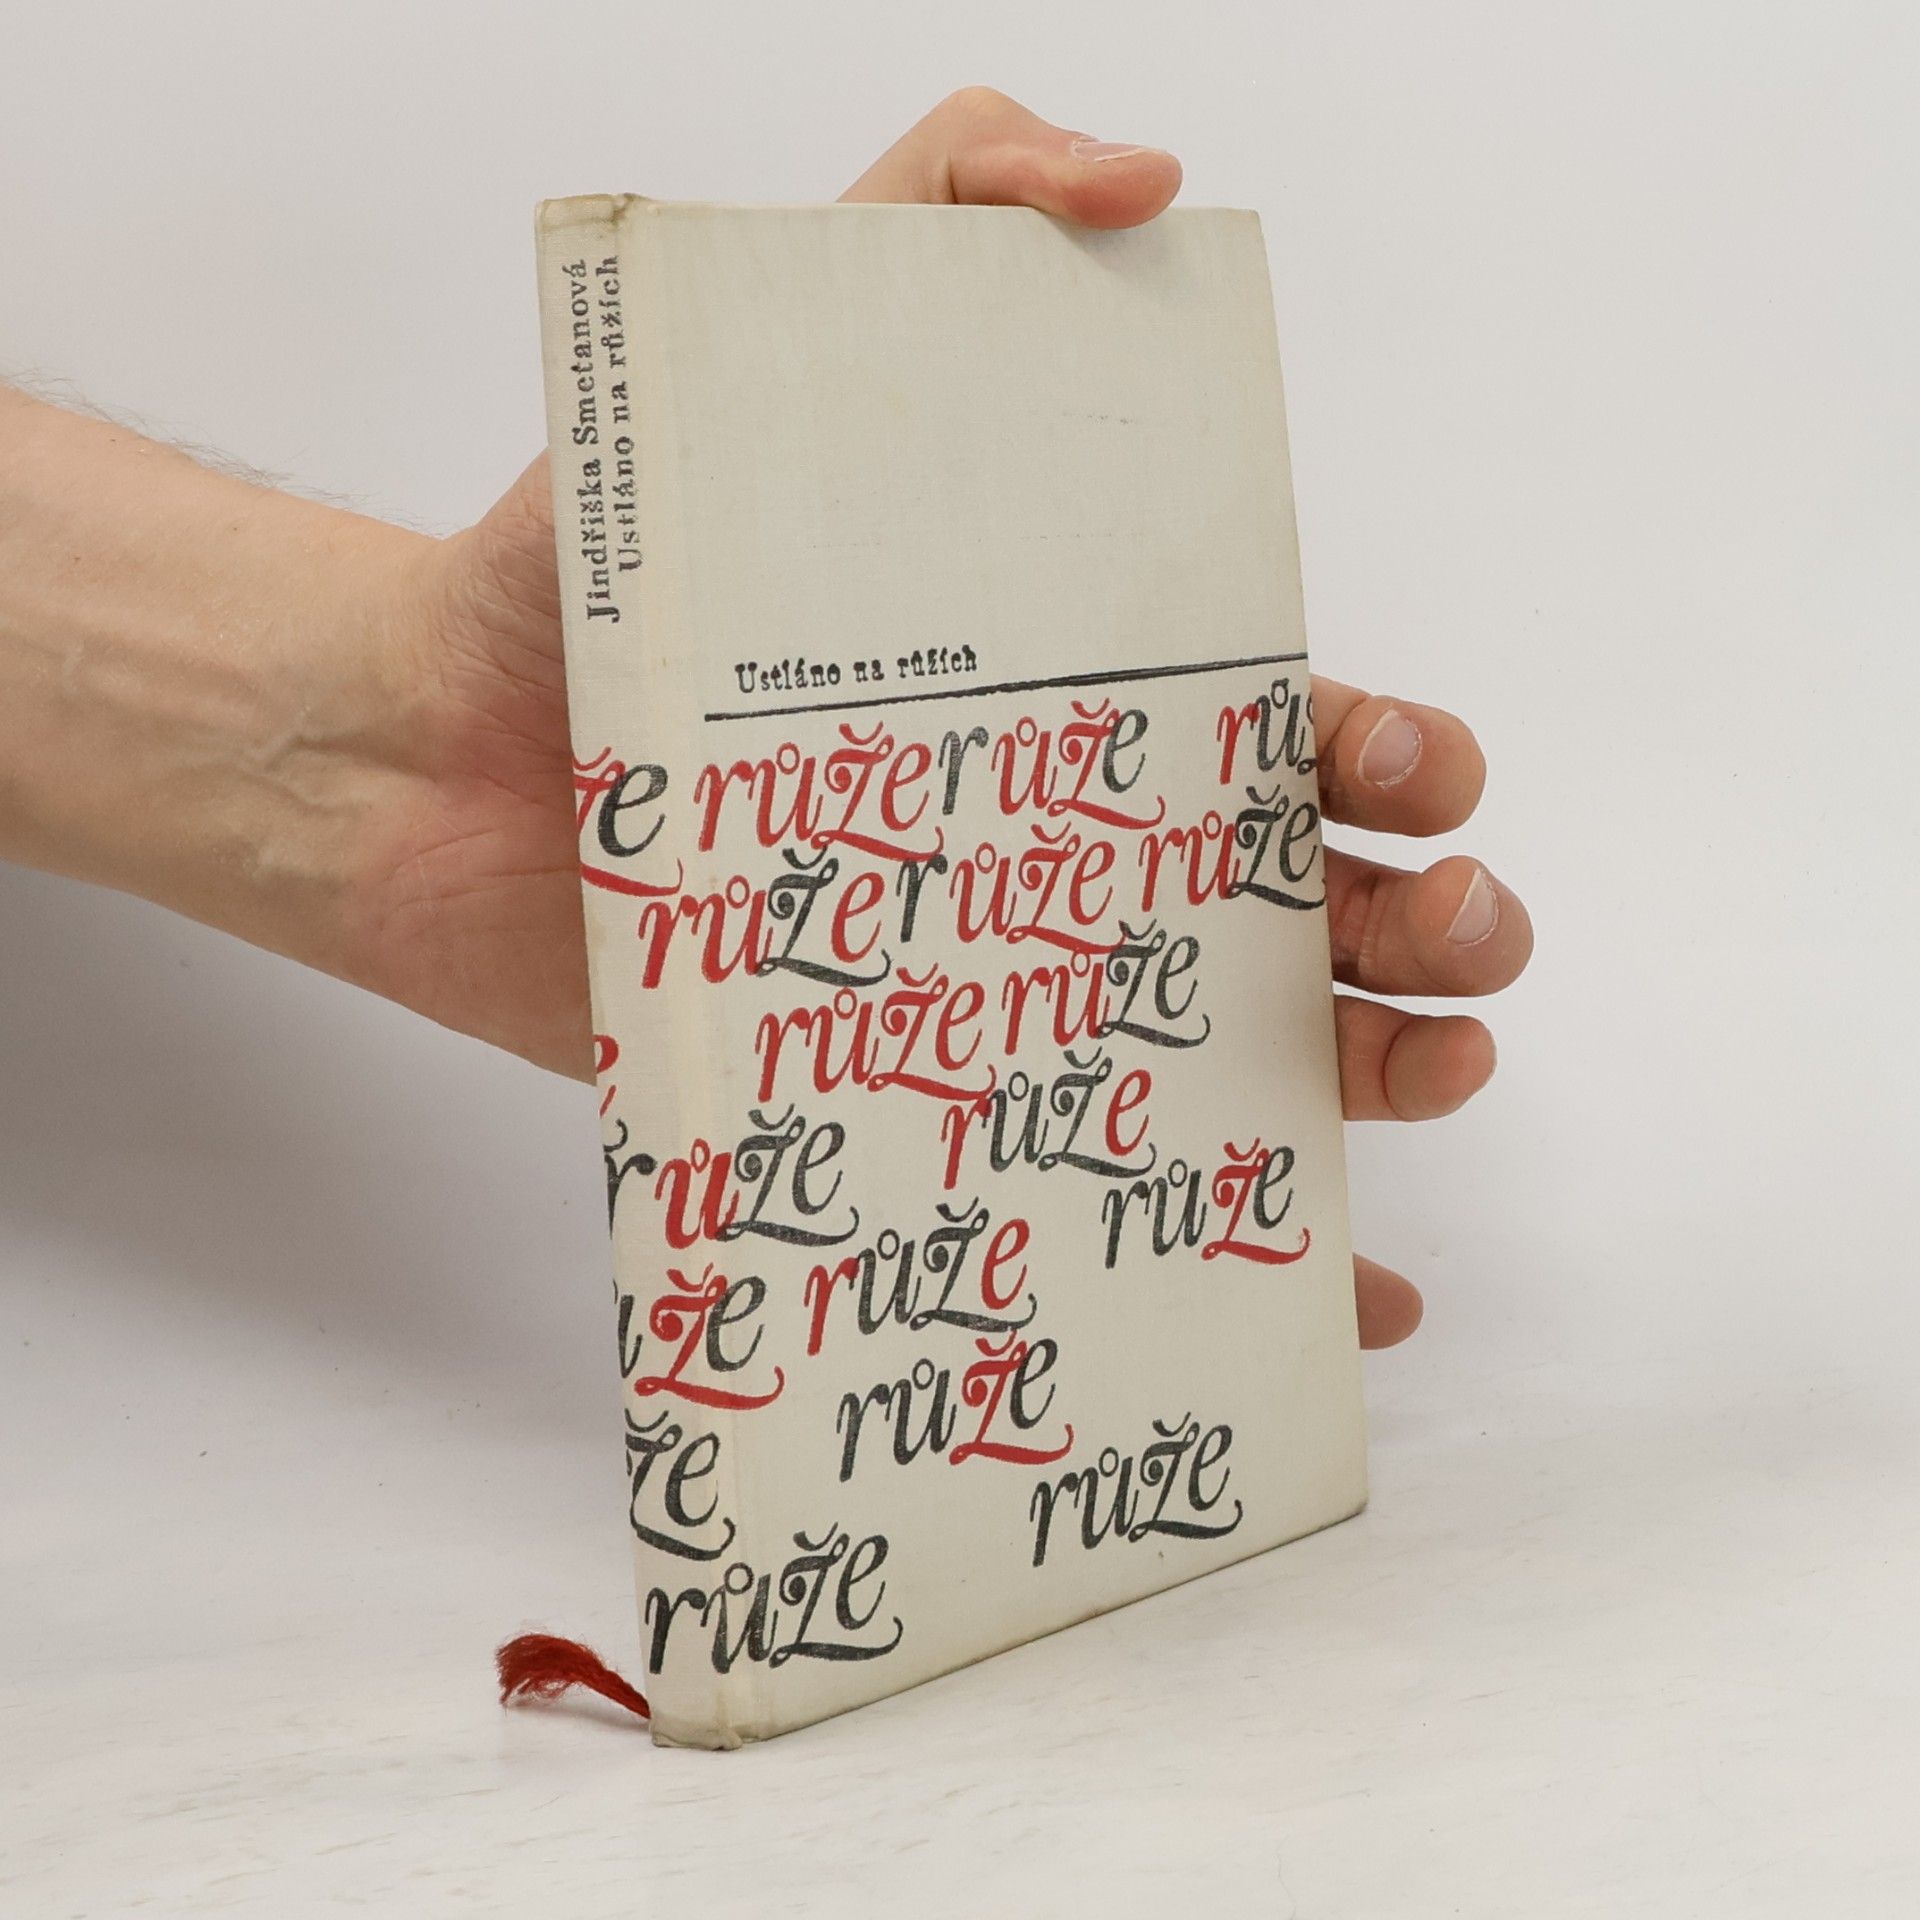 Jindřiška Smetanová
Ustláno na růžích
Ustláno na růžích
že růže růže rů
růže růže růže
růže růže
růže
růže růže
že růže
růže
že růže
růže